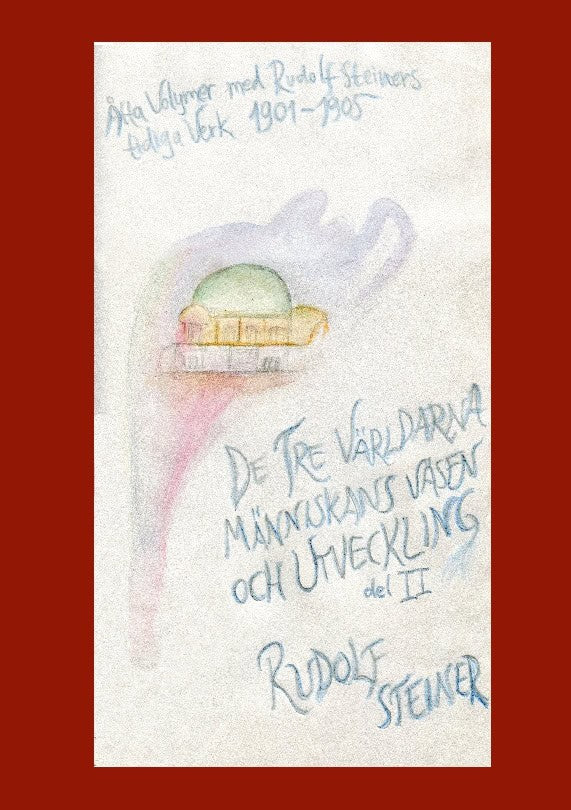 Åtta Volymer med Rudolf Steiners
tidiga Verk 1901–1905
DE TRE VÄRLDARNA
MÄNNISKANS VÄSEN
OCH UTVECKLING
del II
RUDOLF
STEINER